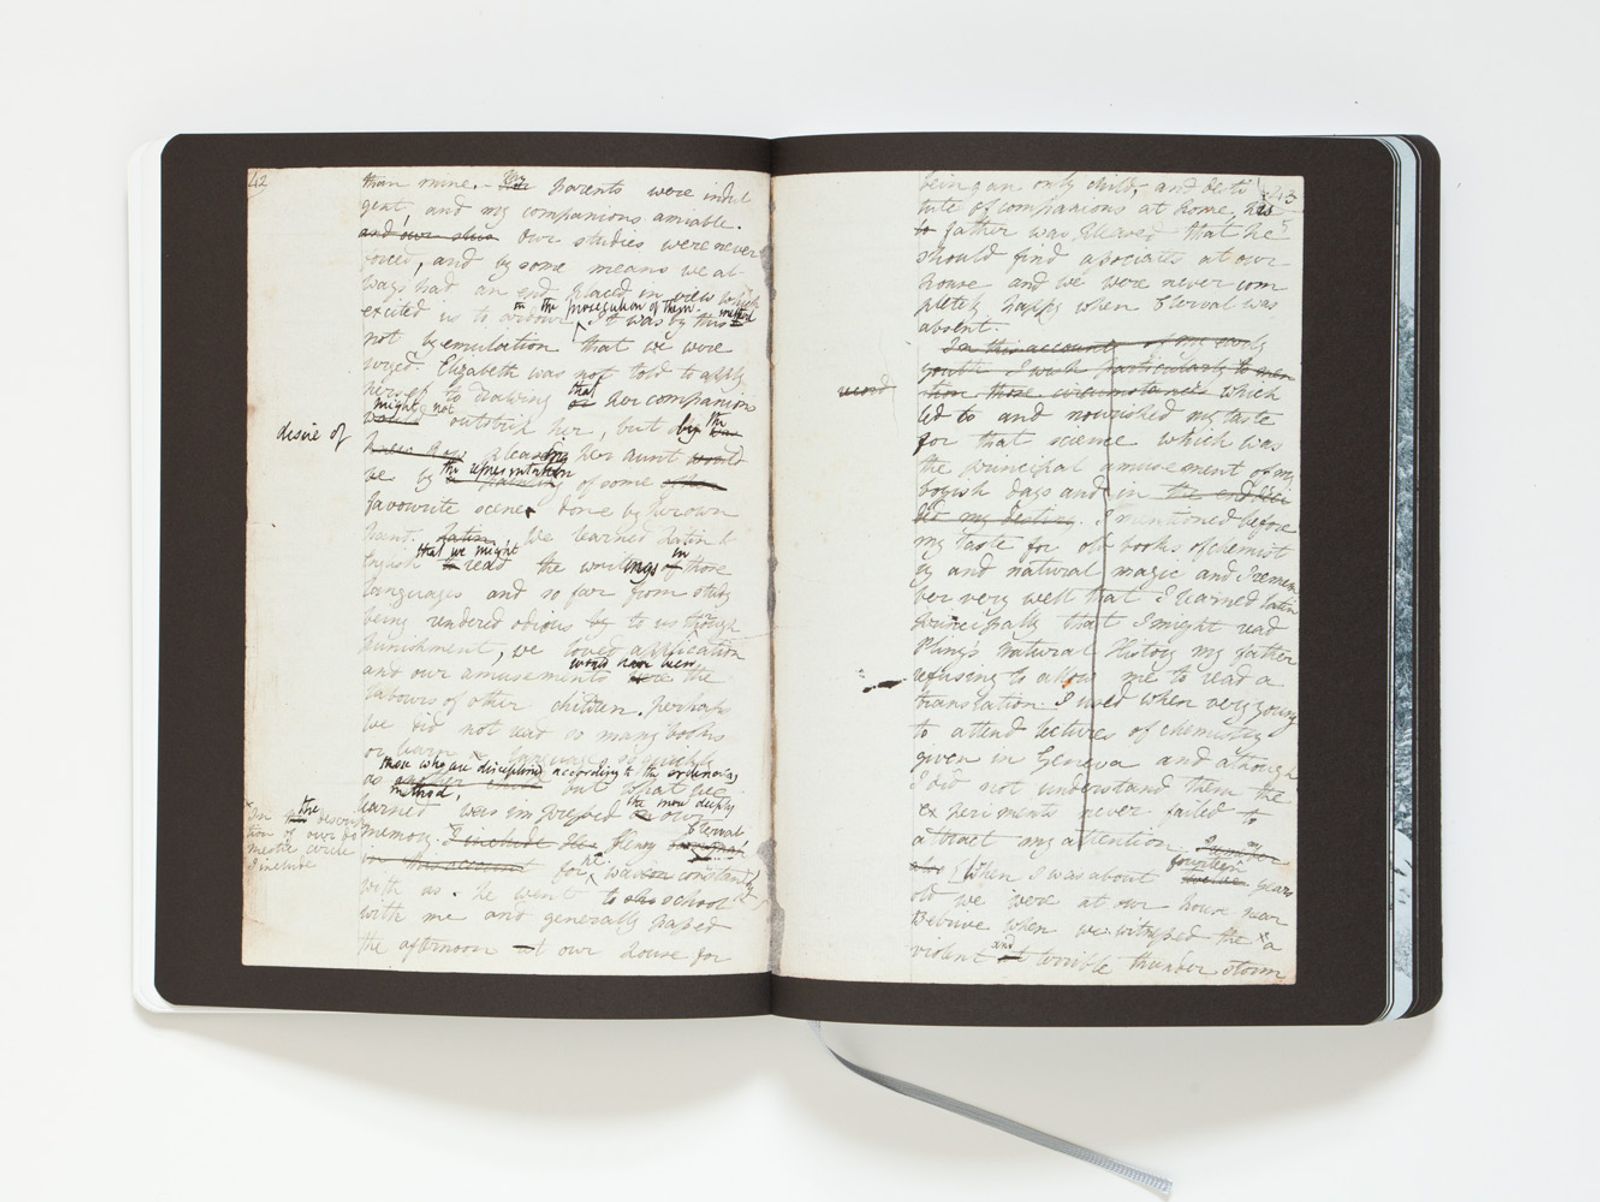 42
than mine. - My Our parents were indul
gent, and my companions amiable.
and our stu Our studies were never
forced, and by some means we al-
ways had an end placed in view which
in the prosecution of them. method
excited us to ardour. It was by this
not by emulation that we were
urged. Elizabeth was not told to apply
herself to drawing that or her companions
might not
would outstrip her, but by the was
desire of
knew how pleasing her aunt would
the representation
be by a painting of some
favourite scene done by her own
hand. Latin We learned Latin &
that we might in
English to read the writings of those
languages and so far from study
being rendered odious by to us through
punishment, we loved application
would have been
and our amusements were the
labours of other children. Perhaps
we did not read so many books
or learn languages so quickly
those who are disciplined according to the ordinary
as another child but what we
method, the more deeply
learned was impressed on our
In the this descrip
tion of our do
mestic circle
I include
memory. I include Henry Clerval
in this account for he was constantly
with us. he went to school
with me and generally passed
the afternoon at our house for
43
being an only child, and desti
tute of companions at home, his
father was pleased that he
should find associates at our
house and we were never com
pletely happy when Clerval was
absent.
In this account of my early
youth I wish particularly to men
word
tion those circumstances which
led to and nourished my taste
for that science which was
the principal amusement of my
boyish days and in the end deci
ded my destiny. I mentioned before
my taste for old books of chemist
ry and natural magic and I remem
ber very well that I learned latin
principally that I might read
Pliny's Natural History my father
refusing to allow me to read a
translation. I used when very young
to attend lectures of chemistry
given in Geneva and although
I did not understand them the
experiments never failed to
attract my attention.
fourteen
also When I was about twelve years
old we were at our house near
Belrive when we witnessed the a
and
violent & terrible thunder storm